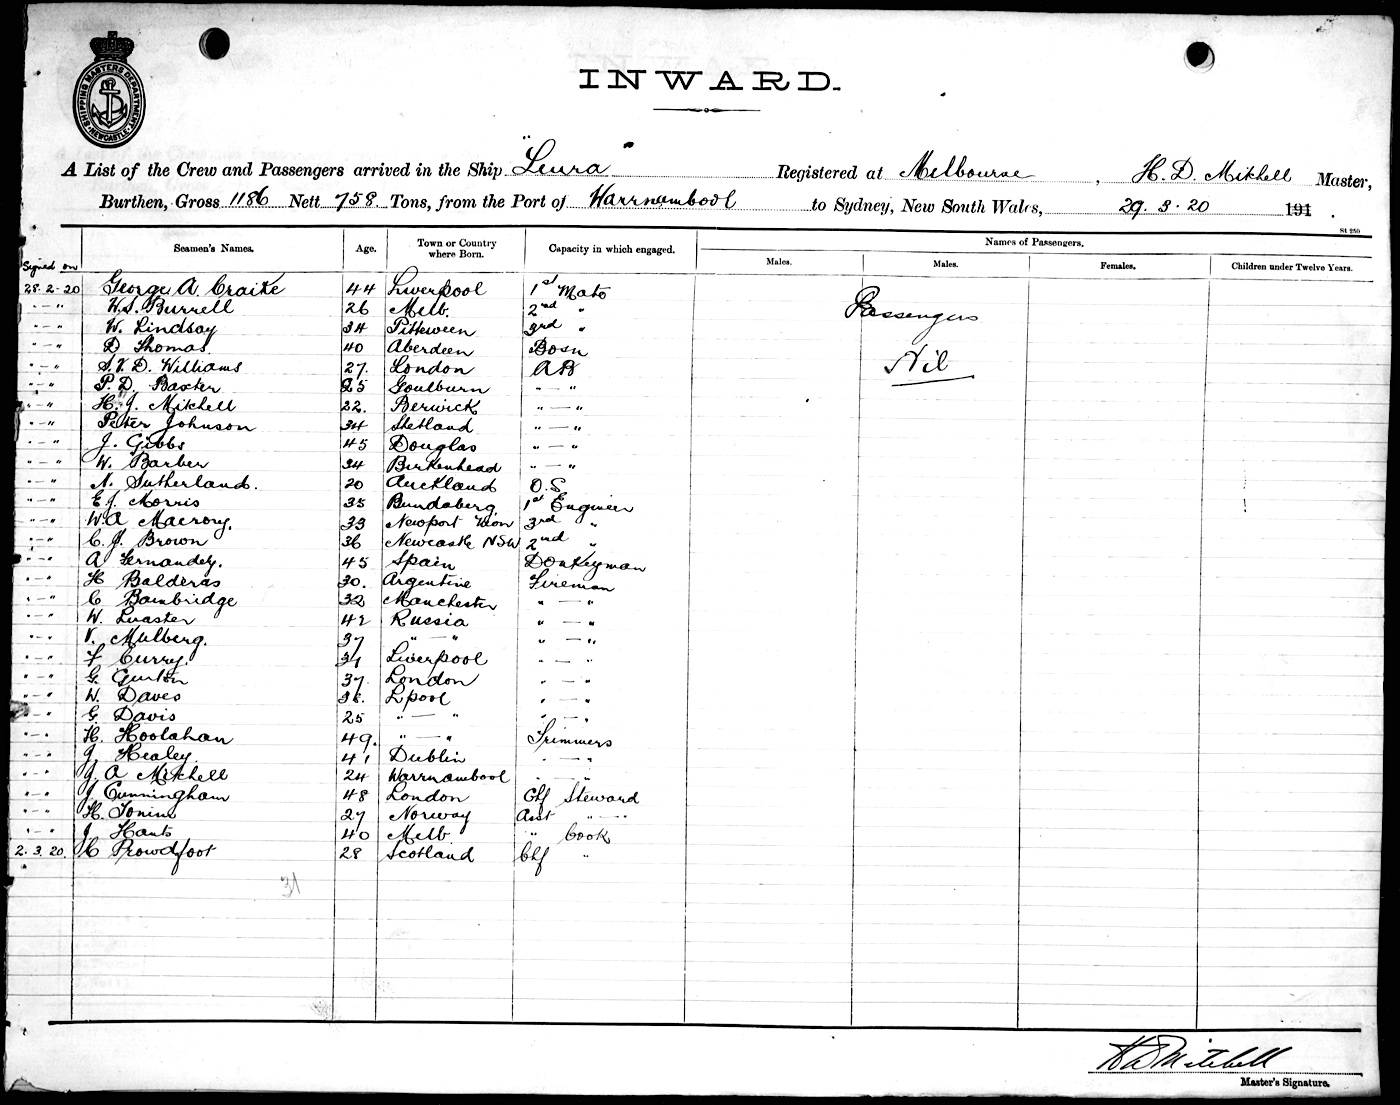 SHIPPING MASTERS DEPARTMENT NEWCASTLE
INWARD.
A List of the Crew and Passengers arrived in the Ship "Leura" Registered at Melbourne, H. D. Mitchell Master,
Burthen, Gross 1186 Nett 758. Tons, from the Port of Warrnambool to Sydney, New South Wales, 29. 3. 20 191 .
St 250
Signed on Seamen's Names. Age. Town or Country where Born. Capacity in which engaged. Names of Passengers.
Males. Males. Females. Children under Twelve Years.
28-2-20 George A Craike 44 Liverpool 1st Mate
" — " W.S. Burrell 26 Melb. 2nd " Passengers
" — " W. Lindsay 34 Pittween 3rd "
" — " D Thomas. 40 Aberdeen Bosn
" — " S.V.D. Williams 27. London AB Nil
" — " P. D. Baxter 25 Goulburn " — "
" — " H. J. Mitchell 22. Berwick " — "
" — " Peter Johnson 34 Shetland " — "
" — " J. Gibbs 45 Douglas " — "
" — " W. Barber 34 Birkenhead " — "
" — " N. Sutherland. 20 Auckland O.S.
" — " E J. Morris 35 Bundaberg. 1st Engineer
" — " W.A Macrory. 33 Newport Mon 3rd "
" — " C. J. Brown 36 Newcastle NSW 2nd "
" — " A Fernandez. 45 Spain Donkeyman
" — " H Balderas 30. Argentine Fireman
" — " C Bambridge 32 Manchester " — "
" — " W. Luaster 42 Russia " — "
" — " V. Mulberg. 37 " — " " — "
" — " F Curry. 31 Liverpool " — "
" — " G. Gurton 37. London " — "
" — " W. Daves 38. Lpool " — "
" — " G Davis 25 " — " " — "
" — " H. Hoolahan 49. " — " Trimmers
" — " J. Healey. 41 Dublin " — "
" — " J. A Mitchell 24 Warrnambool " — "
" — " J Cunningham 48 London Chf Steward
" — " H. 27 Norway Asst " — "
" — " J Hants 40 Melb " Cook
2. 3. 20. C Prowdfoot 28 Scotland Chf "
31
H D Mitchell
Master's Signature.